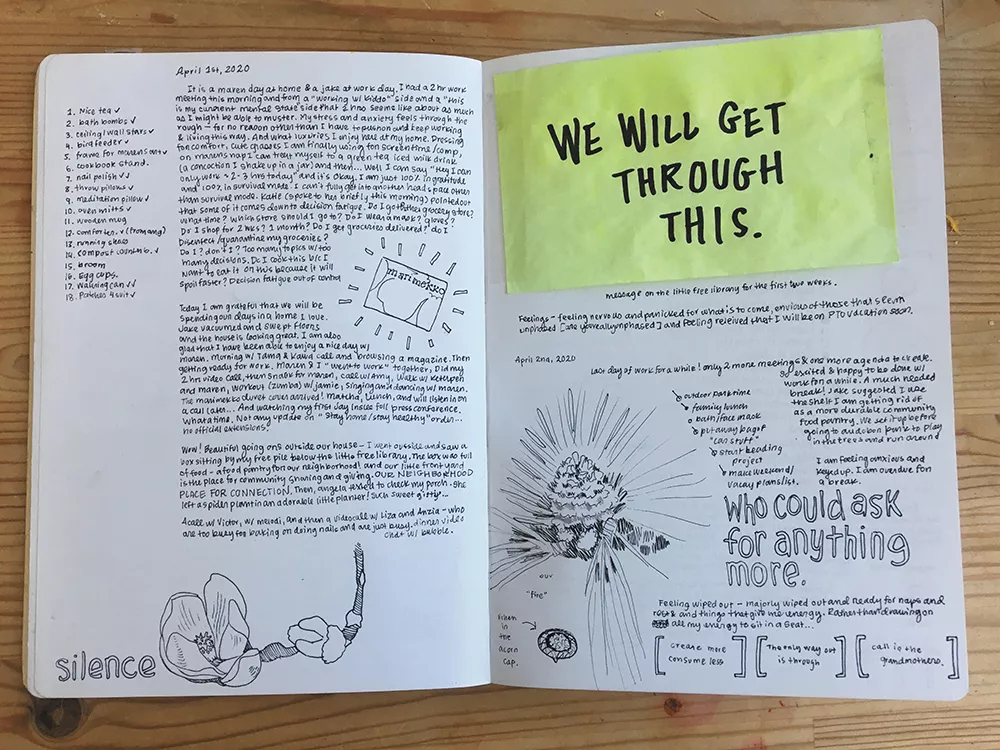 April 1st, 2020
1. Nice tea ✓
2. bath bombs ✓
3. ceiling/wall stars ✓
4. bird feeder ✓
5. frame for marens art ✓
6. cookbook stand.
7. nail polish ✓✓
8. throw pillows ✓
9. meditation pillow ✓
10. oven mitts ✓
11. wooden mug
12. comforter. ✓ (from amy)
13. running shoes
14. compost countain. ✓
15. broom
16. Egg cups.
17. Watering can ✓✓
18. Patches 4 suit ✓
It is a maren day at home & a jake at work day. I had a 2 hr work
meeting this morning and from a "working w/ kiddo" side and a "this
is my current mental state" side that 2 hrs seems like about as much
as I might be able to muster. My stress and anxiety feels through the
rough – for no reason other than I have to push on and keep working
& living this way. And what luxuries I enjoy here at my home. Dressing
for comfort, cute glasses I am finally using for screentime/comp,
on marens nap I can treat myself to a green tea iced milk drink
(a concoction I shake up in a jar) and they... Well I can say "Hey I can
only work ~2-3 hrs today" and it's okay. I am just 100% in gratitude
and 100% in survival mode. I can't fully get into another head space other
than survival mode. Katie (spoke to her briefly this morning) pointed out
that some of it comes down to decision fatigue. Do I go to the grocery store?
What time? Which store should I go to? Do I wear a mask? gloves?
Do I shop for 2 wks? 1 month? Do I get groceries delivered? do I
Disenfect/quarantine my groceries?
Do I? don't I? Too many topics w/ too
many decisions. Do I cook this b/c I
want to eat it or this because it will
spoil faster? Decision fatigue out of control
marimekko
Today I am grateful that we will be
spending our days in a home I love.
Jake vacuumed and swept floors
and the house is looking great. I am also
glad that I have been able to enjoy a nice day w/
maren. Morning w/ Tama & Kawa call and browsing a magazine. Then
getting ready for work. Maren & I "went to work" together, Did my
2 hrs video call, then snack for maren, call w/ Amy, Walk w/
and maren, workout (zumba) w/ Jamie, singing and dancing w/ maren.
The marimekko duvet cover arrived! Matcha, Lunch, and will listen in on
a call later... And watching my first Jay Inslee full press conference.
What a time. Not any update on "stay home/stay healthy" order...
no official extensions.
Wow! Beautiful going ons outside our house – I went outside and saw a
box sitting by my free pile below the little free library. The box was full
of food – a food pantry for our neighborhood! and our little front yard
is the place for community sharing and giving. OUR NEIGHBORHOOD
PLACE FOR CONNECTION. Then, angela texted to check my porch. She
left a spider plant in an adorable little planter! Such sweet gifts...
A call w/ Victor, w/ melodi, and then a videocall w/ Liza and Anzia – who
are too busy for baking on doing nails and are just busy. dinner video
chat w/ bubbie.
silence
WE WILL GET
THROUGH
THIS.
message on the little free library for the first two weeks.
Feelings – feeling nervous and panicked for what is to come, envious of those that seem
unphased [are you really unphased] and feeling relieved that I will be on PTO vacation soon.
April 2nd, 2020
Last day of work for a while! only 2 more meetings & one more agenda to create.
So excited & happy to be done w/
work for a while. A much needed
break! Jake suggested I use
the shelf I am getting rid of
as a more durable community
food pantry. We set it up before
going to audubon park to play
in the trees and run around
outdoor park time
family lunch
bath/face mask
put away bag of
"car stuff"
start beading
project
make weekend/
vacay plans/list.
I am feeling anxious and
keyed up. I am overdue for
a break.
Who could ask
for anything
more.
our
"fire"
in
the
acorn
cap.
Feeling wiped out – majorly wiped out and ready for naps and
rest & and things that give me energy. Rather than drawing on
all my energy to sit in a seat...
[create more
consume less]
[The only way out
is through]
[call in the
grandmothers.]